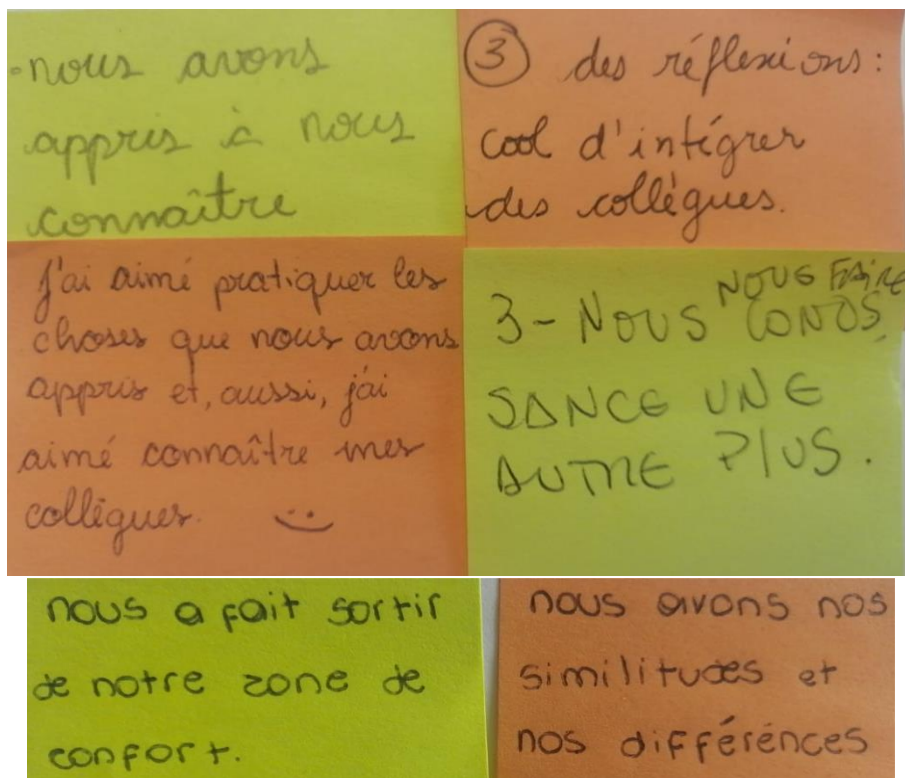 •nous avons
appris à nous
connaître
③ des réflexions:
cool d'intégrer
des collègues.
J'ai aimé pratiquer les
choses que nous avons
appris et, aussi, j'ai
aimé connaître mes
collègues. :)
3- NOUS NOUS FAIRE
CONOS
SANCE UNE
AUTRE PLUS.
nous a fait sortir
de notre zone de
confort.
nous avons nos
similitudes et
nos différénces